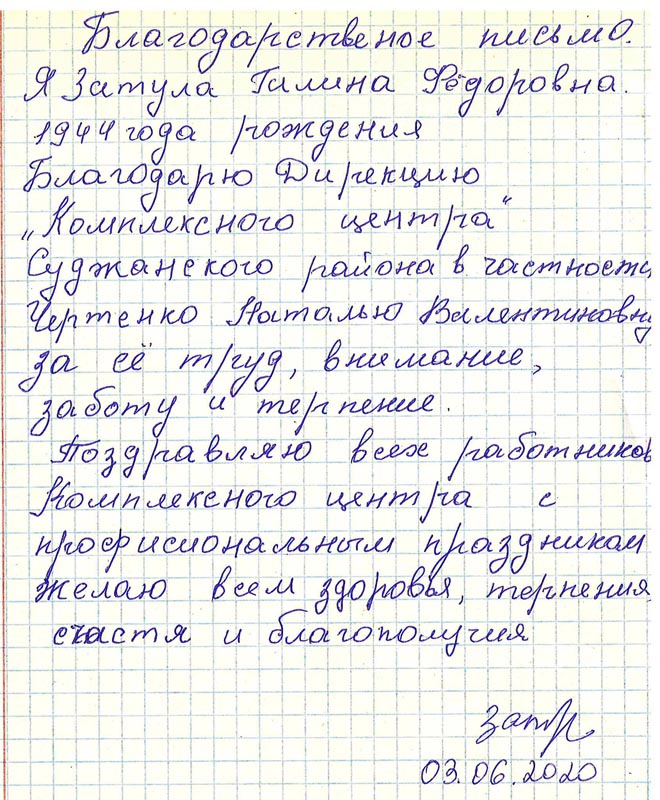 Благодарственое письмо.
Я Затула Галина Фёдоровна.
1944 года рождения
Благодарю Дирекцию
„Комплексного центра“
Суджанского района в частности
Чертенко Наталью Валентиновну
за её труд, внимание,
заботу и терпение.
Поздравляю всех работников
Комплексного центра с
профисиональным праздником
желаю всем здоровья, терпения,
счастя и благополучия
03.06.2020